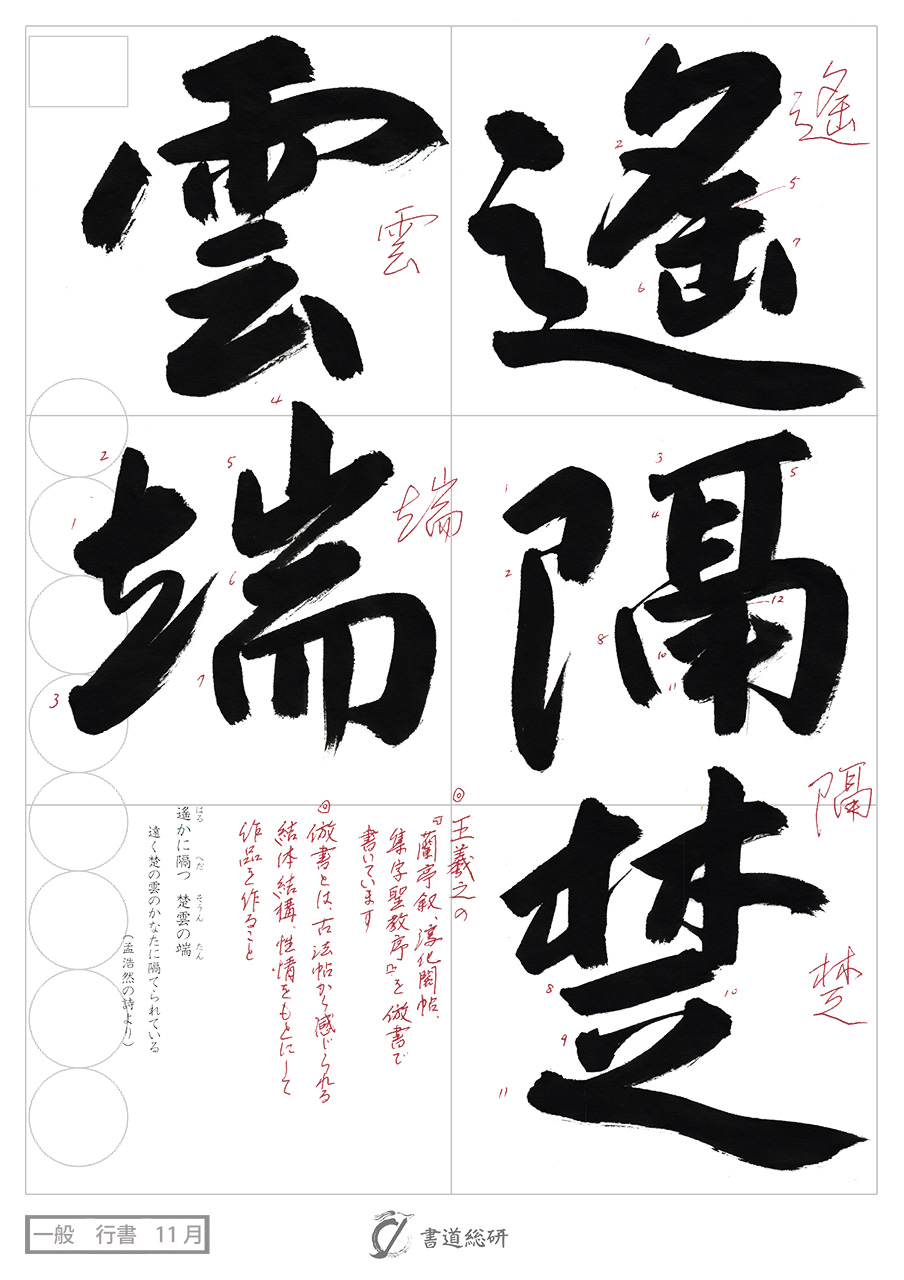 遥隔楚
雲端
遥
隔
楚
雲
端
◎王羲之の
『蘭亭叙、淳化閣帖、
集字聖教序』を倣書で
書いています
◎倣書とは、古法帖から感じられる
結体結構、性情をもとにして
作品を作ること
遙かに隔つ　楚雲の端
はる　へだ　そうん　たん
遠く楚の雲のかなたに隔てられている
（孟浩然の詩より）
1
2
5
6
7
3
5
1
4
2
12
8
10
11
8
10
9
11
4
2
5
1
6
7
3
一般　行書　11月
書道総研